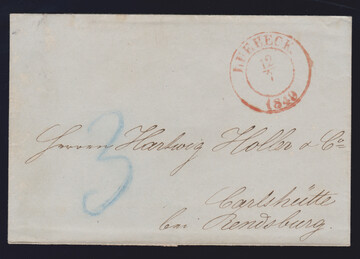 LUEBECK
1849
3
Herren Hartwig Holler & Co
Carlshütte
bei Rendsburg.